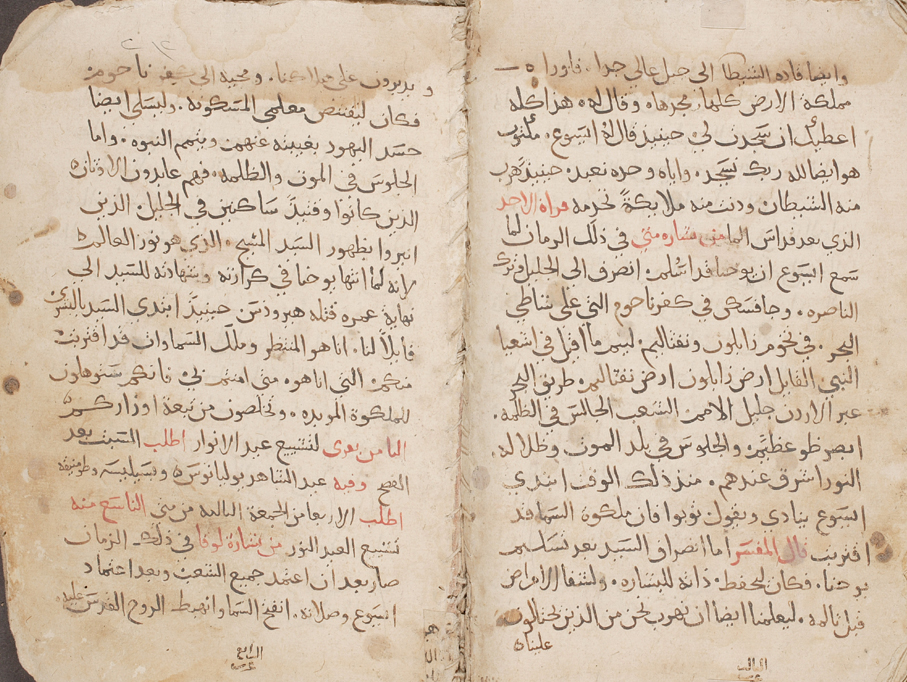 وايضا قاده الشيطان الى جبل عالي جدا، فاوراه
مملكة الارض كلها ومجدها. وقال له هذا كله
اعطيك ان سجدت لي. حينيذ قال له ايسوع، مكتوب
هو ايضا لله ربك تسجد. واياه وحده تعبد. حينيذ هرب
منه الشيطان ودنت منه ملايكة تخدمه قراة الاحد
الذي بعد قداس الما من بشارة متى في ذلك الزمان لما
سمع ايسوع ان يوحنا قد اسلم. انصرف الى الجليل وترك
الناصره. وجا فسكن في كفرناحوم التي على شاطي
البحر. في تخوم زابلون ونفتاليم. ليتم ما قيل في اشعيا
النبي القايل ارض زابلون ارض نفتاليم. طريق البحر
عبر الاردن جليل الامم. الشعب الجالس في الظلمة.
ابصر ضو عظيم. والجلوس في بلد الموت وظلاله.
النور اشرق عندهم. منذ ذلك الوقت ابتدي
ايسوع ينادي ويقول توبوا فان ملكوة السما قد
اقتربت قال المفسر اما انصراف السيد بعد تسليم
يوحنا. فكان لحفظ ذاته للبشاره. ولشفا الامراض
قبل تالمه. ليعلمنا ايضا ان نهرب نحن من الذين يحتالون
علينا
الثالث
و يريدون على هلاكنا. ومجيه الى كفرناحوم
فكان ليقتنص معلمي المسكونه. وليسلي ايضا
حسد اليهود بغيبته عنهم ويتمم النبوه. واما
الجلوس في الموت والظلمه. فهم عابدون الاوثان
الذين كانوا وقتيذ ساكنين في الجليل. الذين
انيروا بظهور السيد المسيح. الذي هو نور العالم
لانه لما انتها يوحنا في كرازته وشهادته للسيد الى
نهاية عمره قتله هيرودس حينيذ ابتدي السيد بالبشرى
قايلا لنا. انا هو المنتظر وملك السماوات قد اقتربت
منكم. التي انا هو. متى امنتم بي فانكم ستوهلون
للملكوة الموبده. وتخلصون من تبعة اوزاركم
الثامن يعرى لتشييع عيد الانوار اطلب السبت بعد
الفصح وفيه عيد الشاهر يوليانوس وبسيليسه
اطلب الاربعا من الجمعة الثالثة من متى التاسع منه
تشييع العيد النور من بشارة لوقا في ذلك الزمان
صار بعد ان اعتمد جميع الشعب وبعد اعتماد
ايسوع وصلاته. انفتح السما وانهبط الروح القدس عليه
السابع